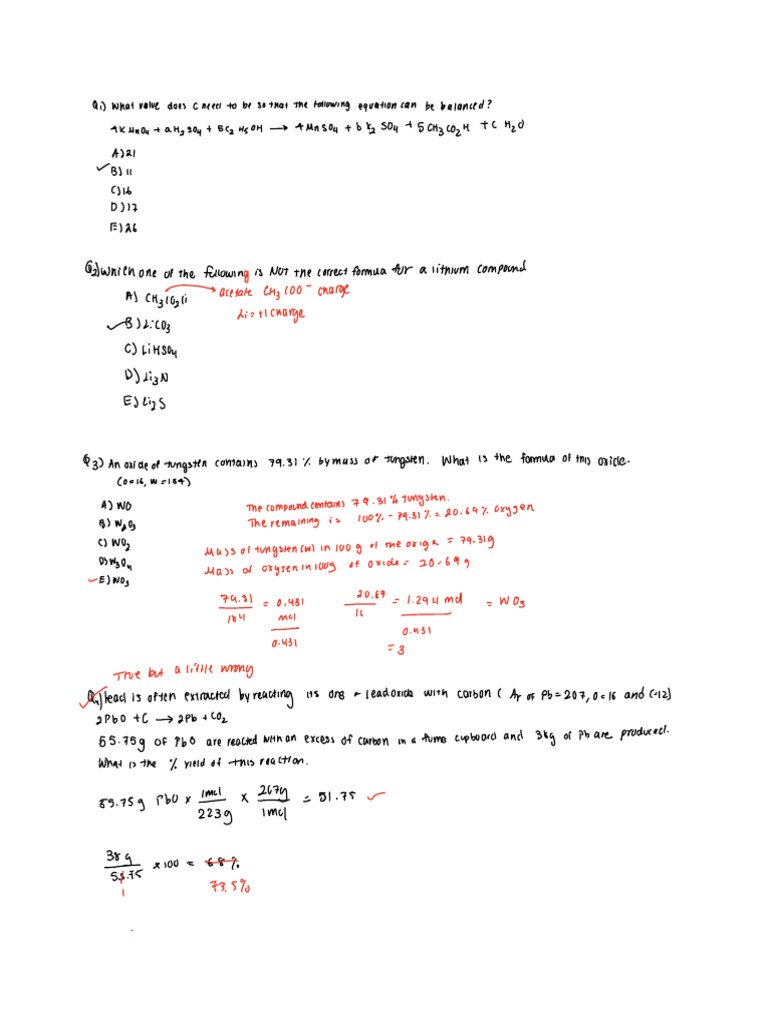 Q1) What value does C need to be so that the following equation can be balanced?
4KMnO4 + aH2SO4 + 5C2H5OH → 4MnSO4 + bK2SO4 + 5CH3CO2H + CH2O
A) 21
B) 11
C) 16
D) 17
E) 26
Q2) Which one of the following is NOT the correct formula for a lithium compound
A) CH3CO2Li → acetate CH3COO⁻ charge
Li = +1 charge
B) LiCO3
C) LiHSO4
D) Li3N
E) Li2S
Q3) An oxide of tungsten contains 79.31% by mass of tungsten. What is the formula of this oxide.
(O=16, W=184)
A) WO
The compound contains 79.31% tungsten.
B) W2O3
The remaining is 100% - 79.31% = 20.69% oxygen
C) WO2
Mass of tungsten (W) in 100 g of the oxide = 79.31g
D) W3O4
Mass of oxygen in 100g of oxide = 20.69g
E) WO3
79.31 / 184 = 0.431 mol / 0.431
20.69 / 16 = 1.294 mol / 0.431 = WO3
= 3
True but a little wrong
Q4) lead is often extracted by reacting its ore - lead oxide with carbon ( Ar of Pb = 207, O=16 and C=12)
2PbO + C → 2Pb + CO2
55.75g of PbO are reacted with an excess of carbon in a fume cupboard and 38g of Pb are produced.
What is the % yield of this reaction.
55.75g PbO x 1mol / 223g x 207g / 1mol = 51.75
38g / 55.75 x 100 = 68%
1
73.5%